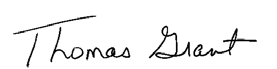 Thomas Grant